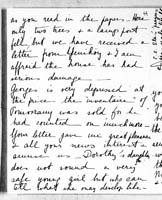 as you read in the paper. Here
only two trees & a lamp post
fell but we have received a
letter from Quickoy & I am
afraid the house has had
serious damage
Georges is very depressed at
the price the inventaire of
Pomornany was sold for he
had counted on much more
Your letter gave me great pleasure
& all your news interest &
amuse us Dorothy's daughter
does not sound a very
safe young girl but who can
tell what she may develop like